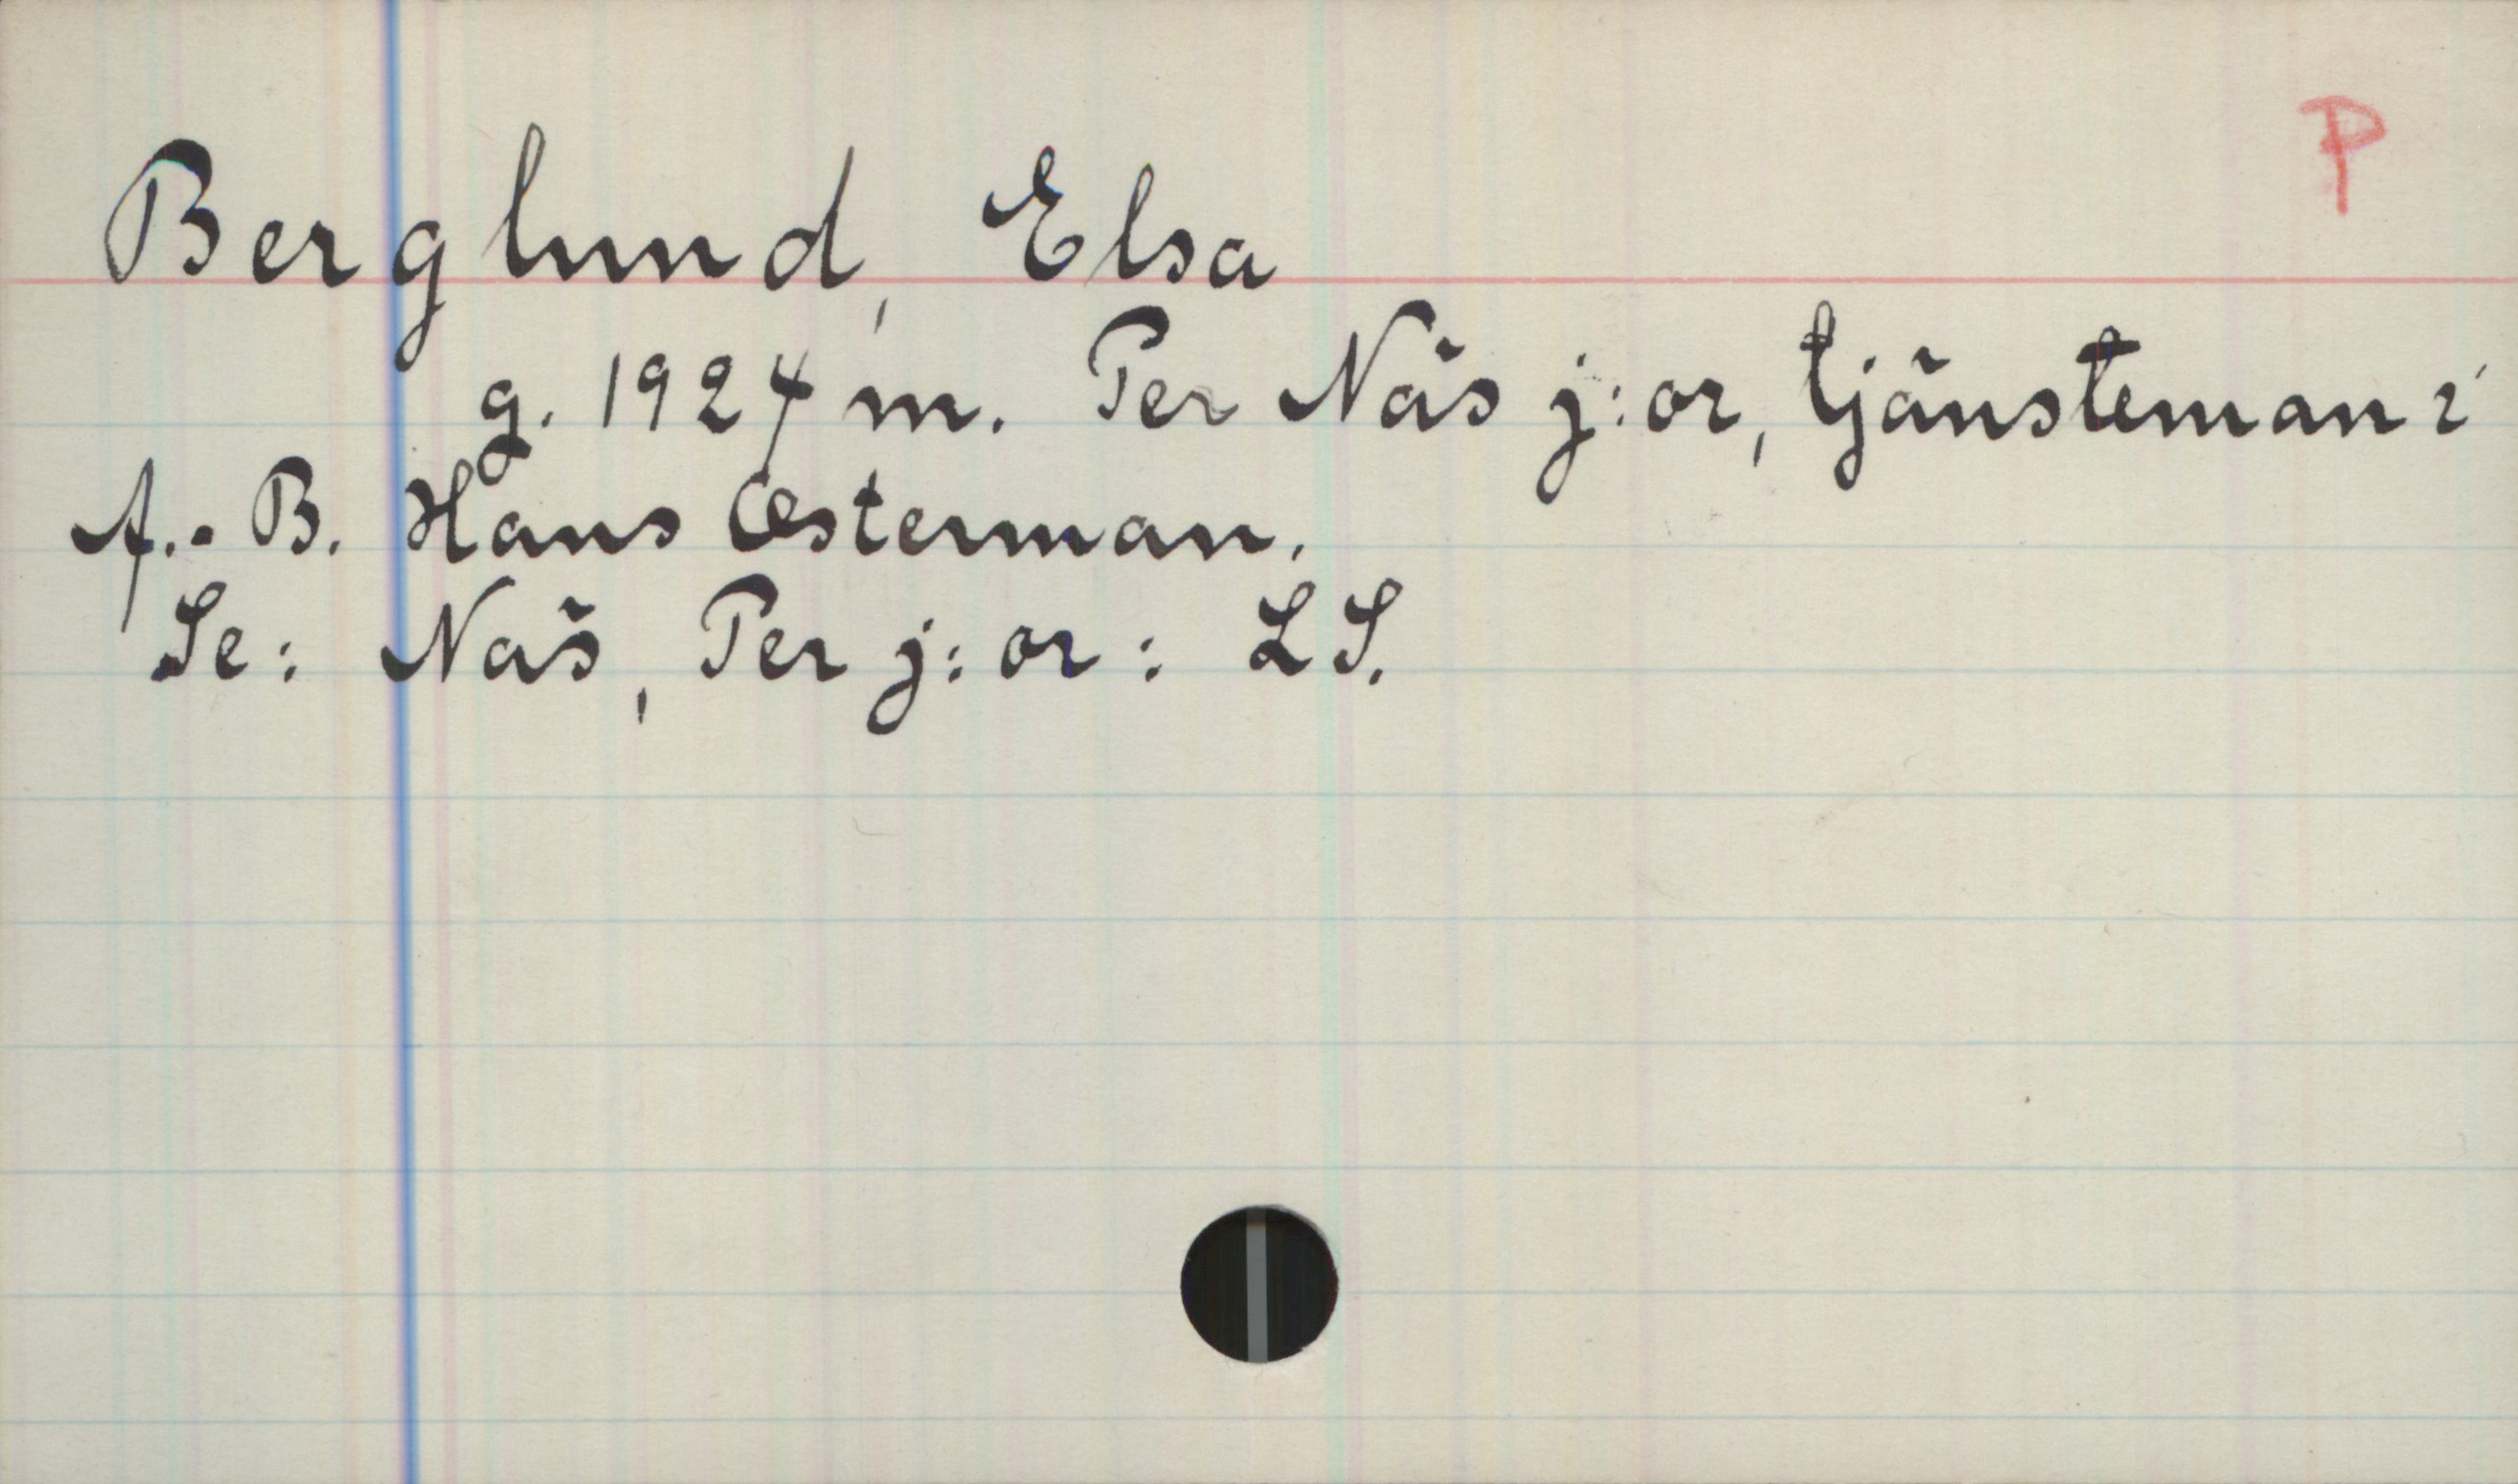 P
Berglund, Elsa
g. 1924 m. Per Näs j:or, tjänsteman i
A.-B. Hans Œsterman.
Se: Näs, Per j:or: LS.